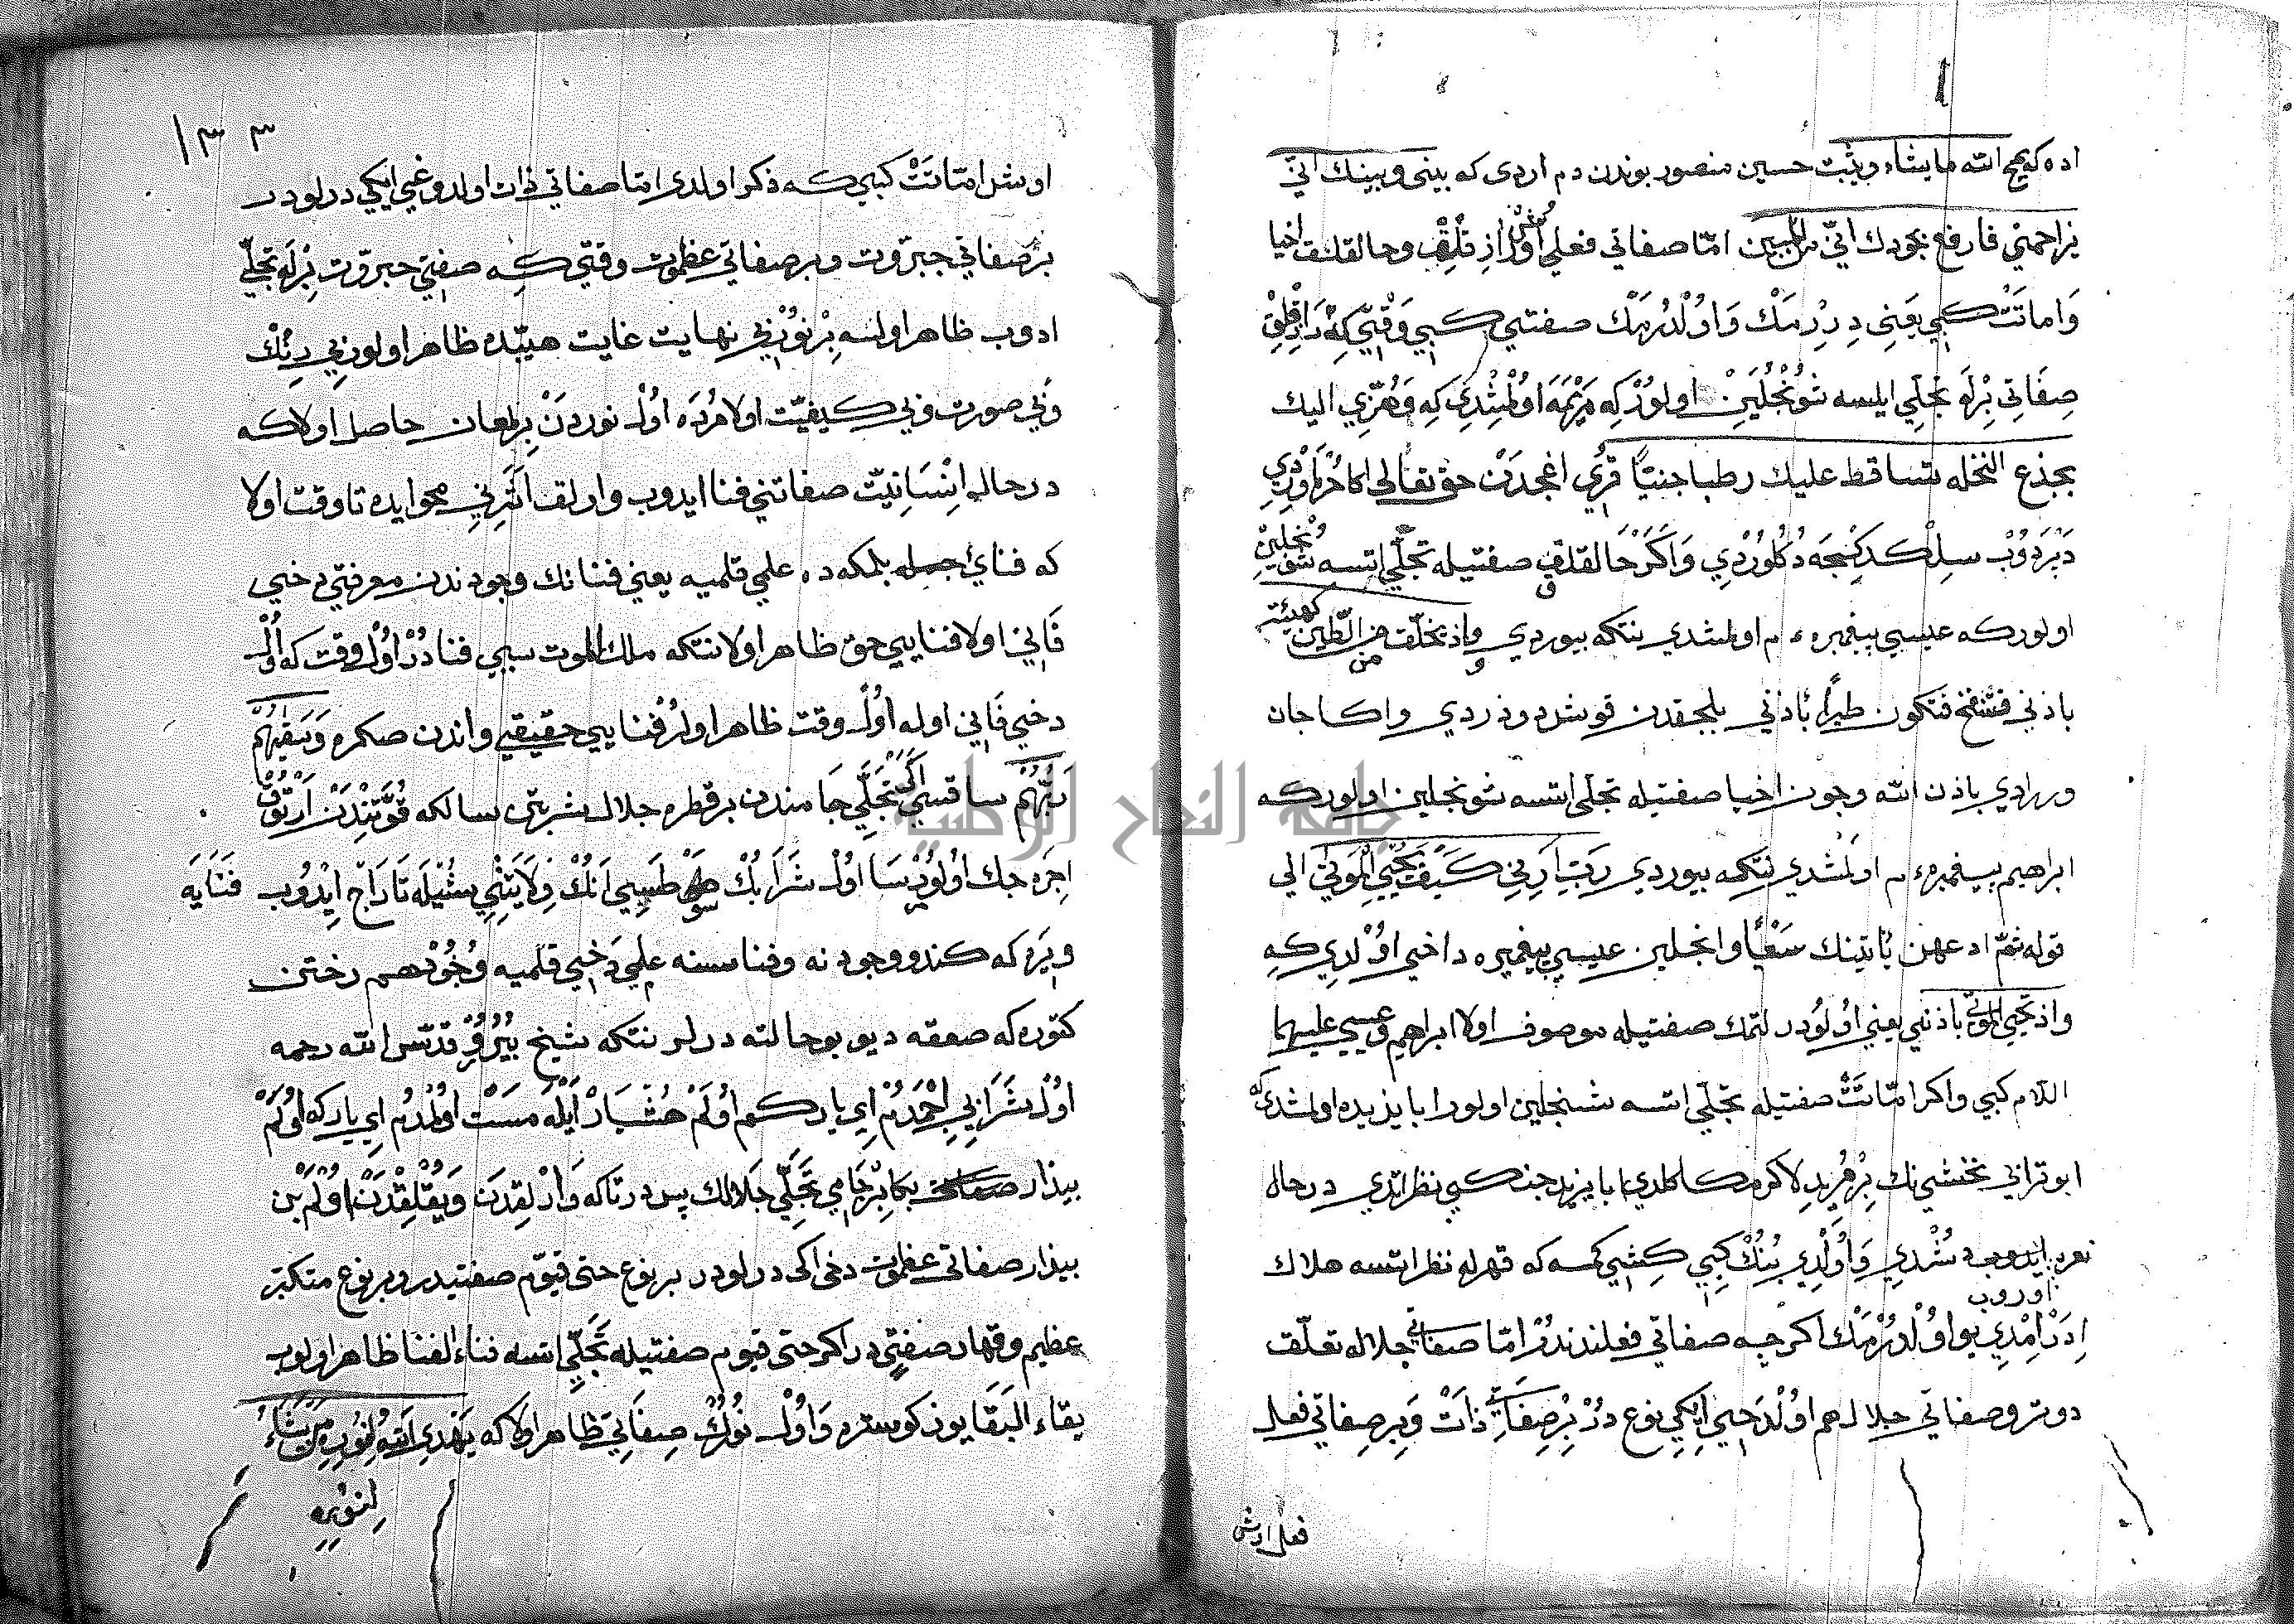 اده كه يمح الله ما يشاء ويثبت حسين منصور بوندن دم اردى كه بيني وبينك اني
يزاحمني فارفع بجودك اني من البين امّا صفاتي فعلي اولدر وخالقلق احيا
وَاماتَتْ كبي يعني دِرْرمَكْ وَاوُلْدُرمَكْ صفتي كبي وَقْتي كِه رَازِقْلِقْ
صِفَاتي بِرْلَه تجَلّي ايلسه شوُنْجُلَينْ اولورْكِه مَرْيَمَه اوُلْمُشْدِي كِه وَهُزّي اليك
بجذع النخله تساقط عليك رطبا جنيّا قُرُي اغجدن حق تعالى اكا خُرْمَا وَردي
دَبْرَدوُبْ سِلْكدكنجَه دُكُلورْدي وَاكَرْ خالقلق صفتيله تجلّي اتسه شُونجلين
اولوركه عيسي پيغمبره م اولمشدي نتكه بيوردي واذ تخلق من الطّين كهيئة
باذني فتنفخ فتكون طيراً باذني بلجقدن قوش دوزردي واكا جان
ورردي باذن الله وچون احيا صفتيله تجلّي اتسه شونجلين اولوركه
ابرهيم پيغمبره م اولمشدي نتكه بيوردي رَبّ اَرِني كَيْفَ تُحْيِي الْمَوْتى الي
قوله ثمّ ادعهن يأتينك سَعْياً وانجلين عيسي پيغمبره داخي اوُلدي كه
واذ تحيي الموتى باذني يعني اوُلودر لتمك صفتيله موصوف اولا ابراهيم وعيسي عليهما
السلام كبي واكر اماتَتْ صفتيله تجلّي اتسه شنجلين اولور ابا يزيده اولمشدي كه
ابو تراب نخشبي نك بِرْمُريدِ لاكر مكا كلدي ابا يزيد جنك كبي نظر ايتدي درحال
نعره اوروب دُشْدي وَاوُلْدي بُنُكْ كِبي كِشي كمسه كه قهرله نظر اتسه هلاك
اِدَرْ اِمْدي بو اوُلْدُرْمَكْ اكرچه صفاتي فعلندندُرْ امّا صفاتي جلاله تعلّق
دوتر وصفاتي جلال هم اوُلْدَخي اِيكي نوع دُرْ بِرْ صِفَاتي ذَاتْ وَبِر صِفاتي فعل
فعل اوش
١٣٣
اوش اماتَتْ كبي كه ذكر اولدي امّا صفاتي ذات اولدوغي ايكي درلودر
بِرْ صفاتي جبروت وبر صفاتي عظموت وقتي كه صفتي جبروت بِرْلَه تجلّي
ادوب ظاهر اولسه بِرْ نوُرْ بي نهايت غايت هيبتده ظاهر اولور بي رِنْك
وَبي صورت وبي كيفيّت اولا مُردَه اوُل نوردَنْ بِر لمعان حاصل اولاكه
درحال اِنْسَانِيّت صفاتني فنا ايدوب وارلق اَثَرِني محو ايده تا وقت اولا
كه فناي بلمكه ده علمي قلميه يعني فنانك وجودندن معرفتي دخي
فَاني اولا فنايي حق ظاهر اولا نتكه ملك الموت سببي فنادُرْ اوُل وقت كه اوُل
دخي فَاني اوله اوُل وقت ظاهر اولُر فنايي حقيقي واندن صكره وَسَقيهُمْ
رَبُّهُمْ ساقسي تجَلّي جامندن بر قطره جلال شربتي سالكه قُوَّتِنْدَنْ اَرْتوُقْ
اجِرَه جك اوُلوُرْسَا اوُل شَرَابُكْ طَبيبي اَنُكْ وِلَايَتِني تَارَاجْ ايْدُوبْ فنَايَه
ويَره كه كندو وجودنه وفناسنه عِلْمي دَخي قلميه وُجُودْ هم رختن
كتوره كه صعقه ديو بوحالته درلر نتكه شيخ قدّس الله رحمه
اوُل شَرَابي اِجْمَدُمْ اِي يار كم اوُلَمْ هُشْيَارْ ايْلَه مَسْت اوُلْمُدُم اِي يار كه اوُلَمْ
بيذار بكا بِرْ جَامي تجَلّي جَلَالك پس در تاكه وَارْلِقدَن وَيُقْلِقْدَنْ اوُلَم بن
بيذار صفاتي عظموت دخي اكي درلودر بر نوع حيّ قيّوم صفتيدر وبر نوع متكبّر
عظيم وقهار صفتي در اكر حيّ قيوم صفتيله تجَلّي اتسه فناءُ الفنا ظاهر اولوب
بقاء البَقَا يوز كوستره وَاوُلْ نُورُكْ صِفَاتي ظاهر اولا كه يَهْدي اَللهُ لِنُورِه مَنْ يَشَاءُ
لنوره